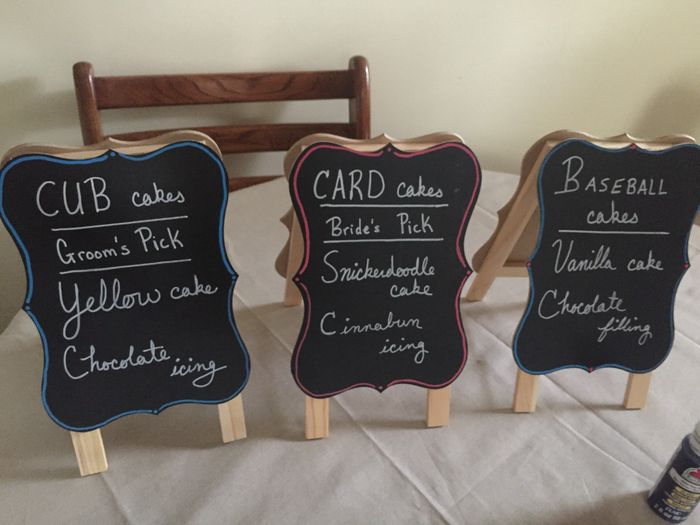 CUB cakes
Groom's Pick
Yellow cake
Chocolate icing
CARD cakes
Bride's Pick
Snickerdoodle
cake
Cinnabun
icing
BASEBALL
cakes
Vanilla cake
Chocolate
filling